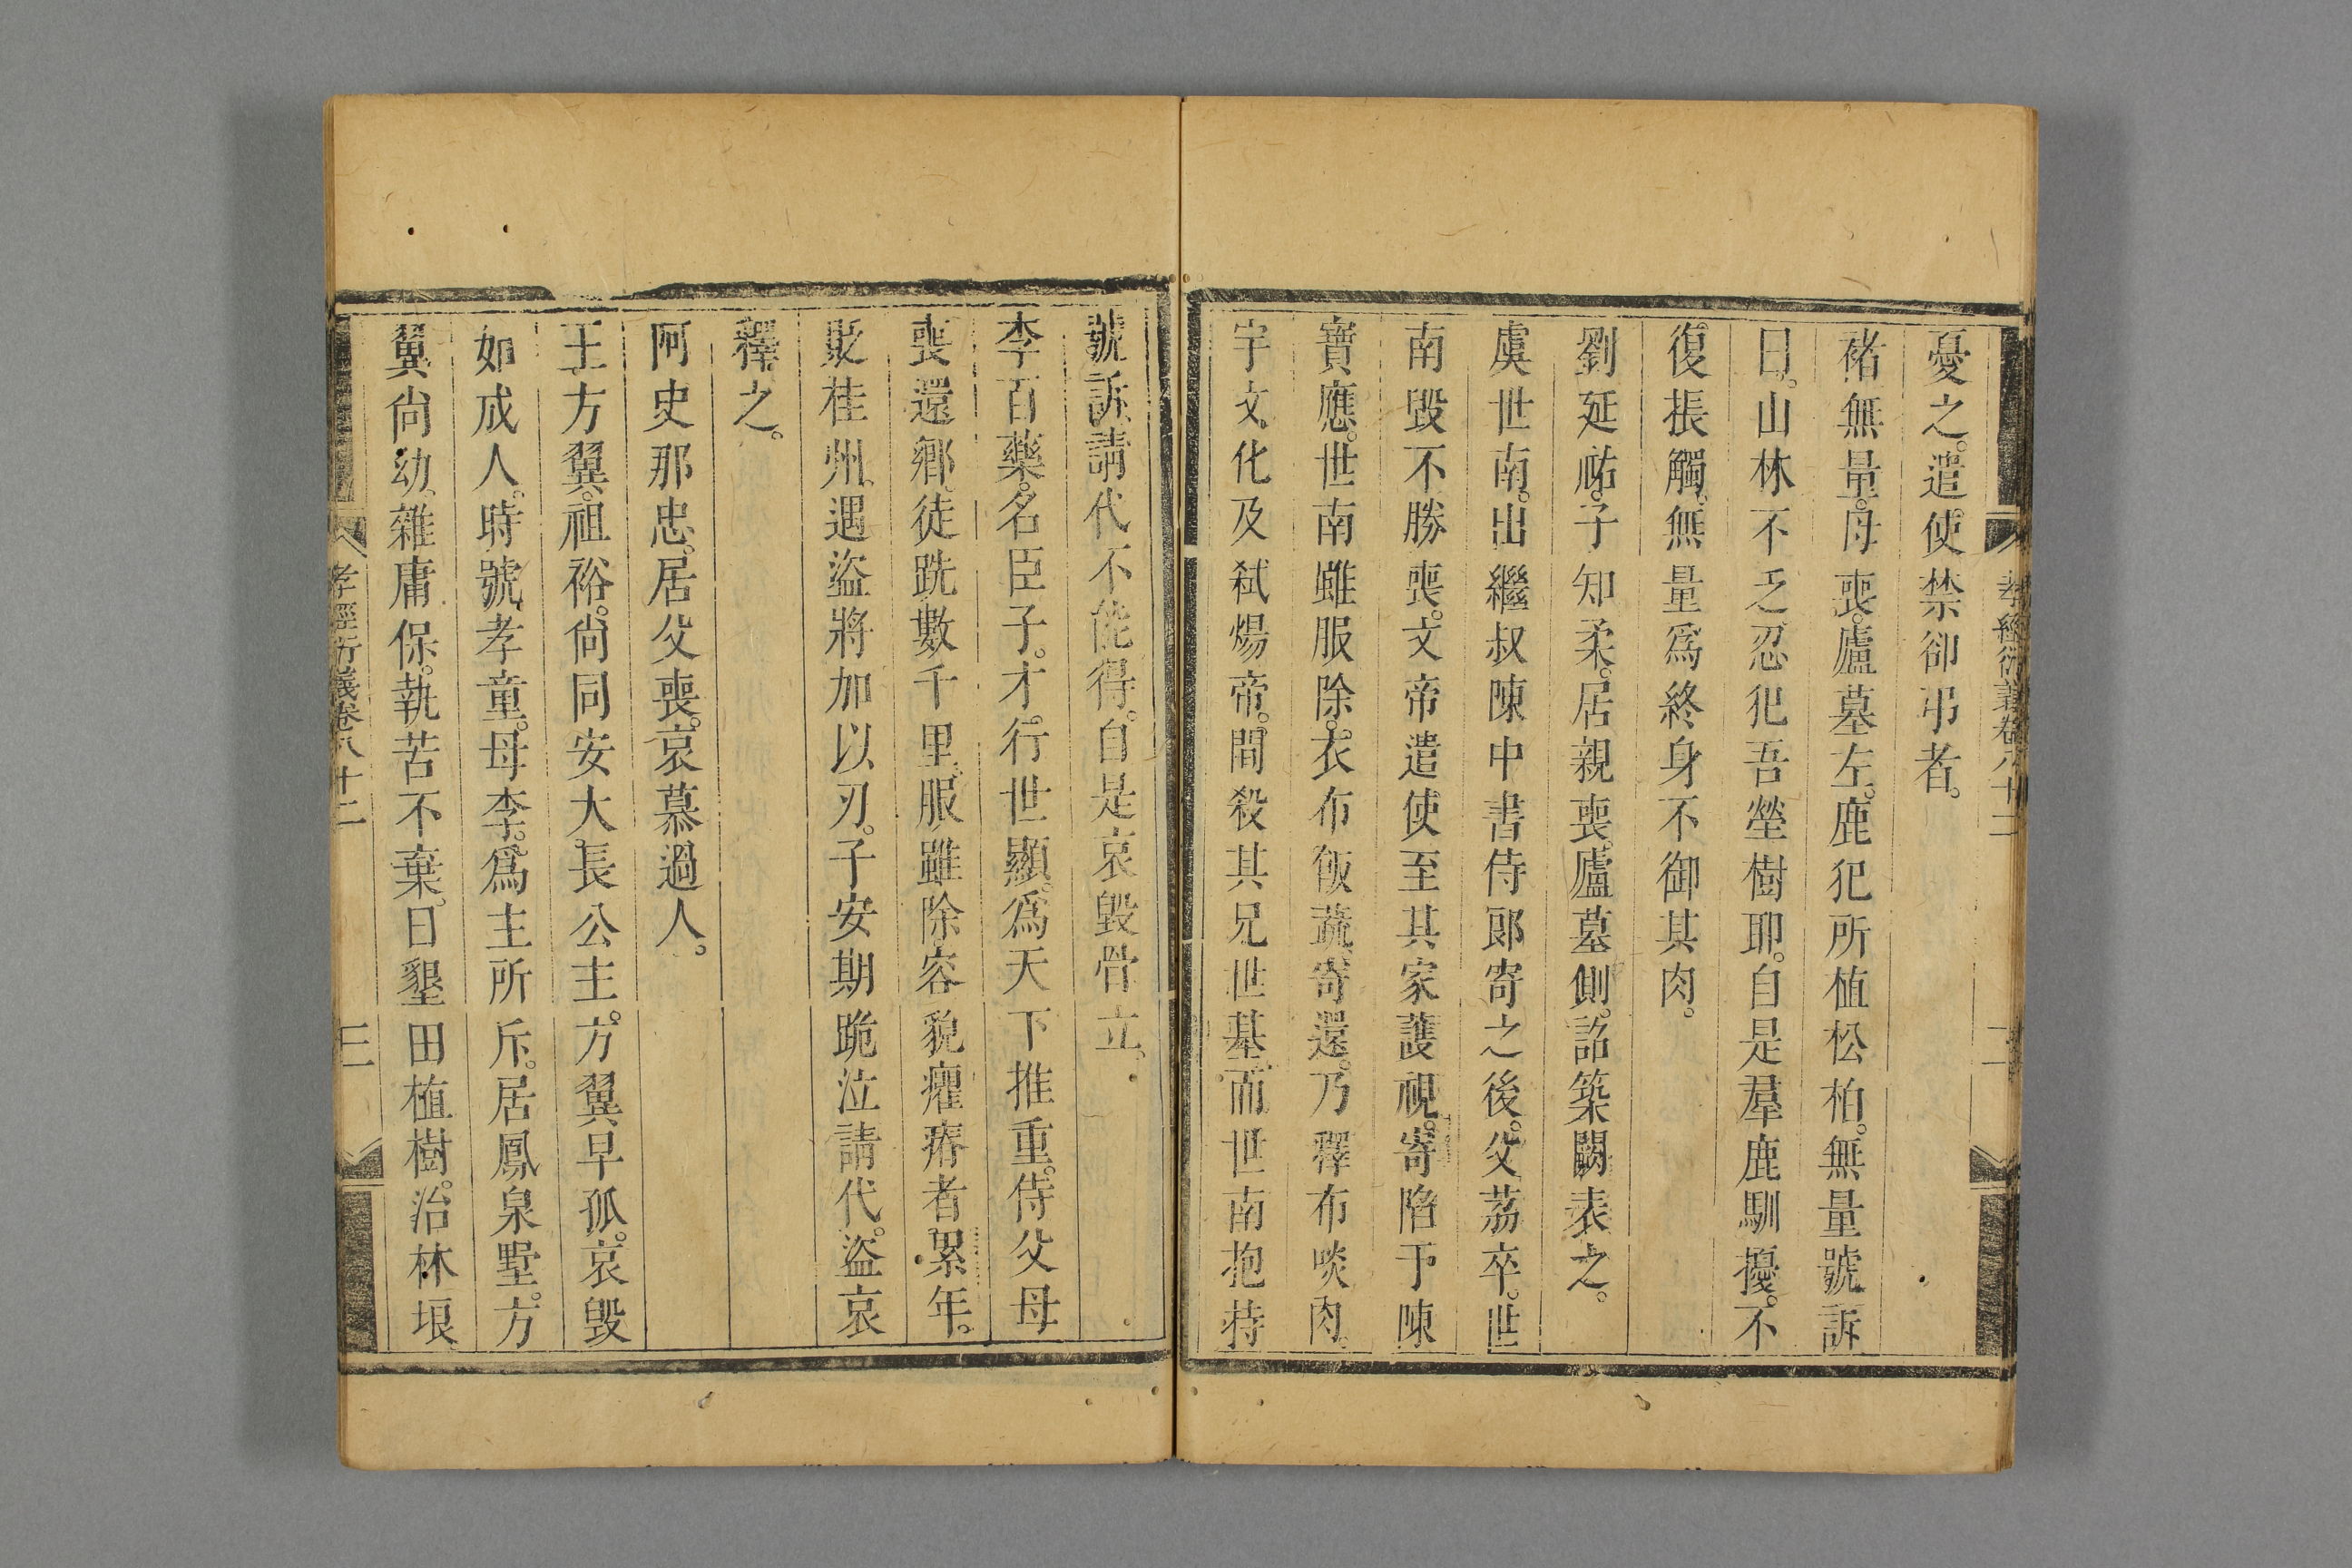 孝經衍義卷八十二
二
憂之。遣使禁卻弔者。
褚無量。母喪。廬墓左。鹿犯所植松柏。無量號訴
曰。山林不乏、忍犯吾塋樹耶。自是羣鹿馴擾。不
復棖觸。無量爲終身不御其肉。
劉延祐。子知柔。居親喪。廬墓側。詔築闕表之。
虞世南。出繼叔陳中書侍郞寄之後。父荔卒。世
南毀不勝喪。文帝遣使至其家護視。寄陷于陳
寶應。世南雖服除。衣布飯蔬。寄還。乃釋布啖肉。
宇文化及弑煬帝。間殺其兄世基。而世南抱持
號訴請代不能得。自是哀毀骨立。
李百藥。名臣子。才行世顯。爲天下推重。侍父母
喪還鄕。徒跣數千里。服雖除容貌癯瘠者累年。
貶桂州。遇盜將加以刃。子安期跪泣請代。盜哀
釋之。
阿史那忠。居父喪。哀慕過人。
王方翼。祖裕。尙同安大長公主。方翼早孤。哀毀
如成人。時號孝童。母李。爲主所斥。居鳳泉墅。方
翼尙幼、雜庸保。執苦不棄。日墾田植樹。治林垠
孝經衍義卷八十二
三